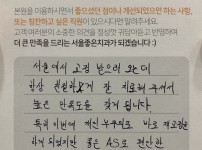 본원을 이용하시면서 좋으셨던 점이나 개선되었으면 하는 사항,
또는 칭찬하고 싶은 직원이 있으시다면 말해주세요.
고객여러분의 소중한 의견을 정성껏 귀담아듣고 반영하여
더 큰 만족을 드리는 서울좋은치과가 되겠습니다 :)
서울에서 교정 받으러 왔는데
항상 친절하게 잘 치료해 주셔서
높은 만족도를 갖게 됩니다
특히 이번에
좋은 AS로